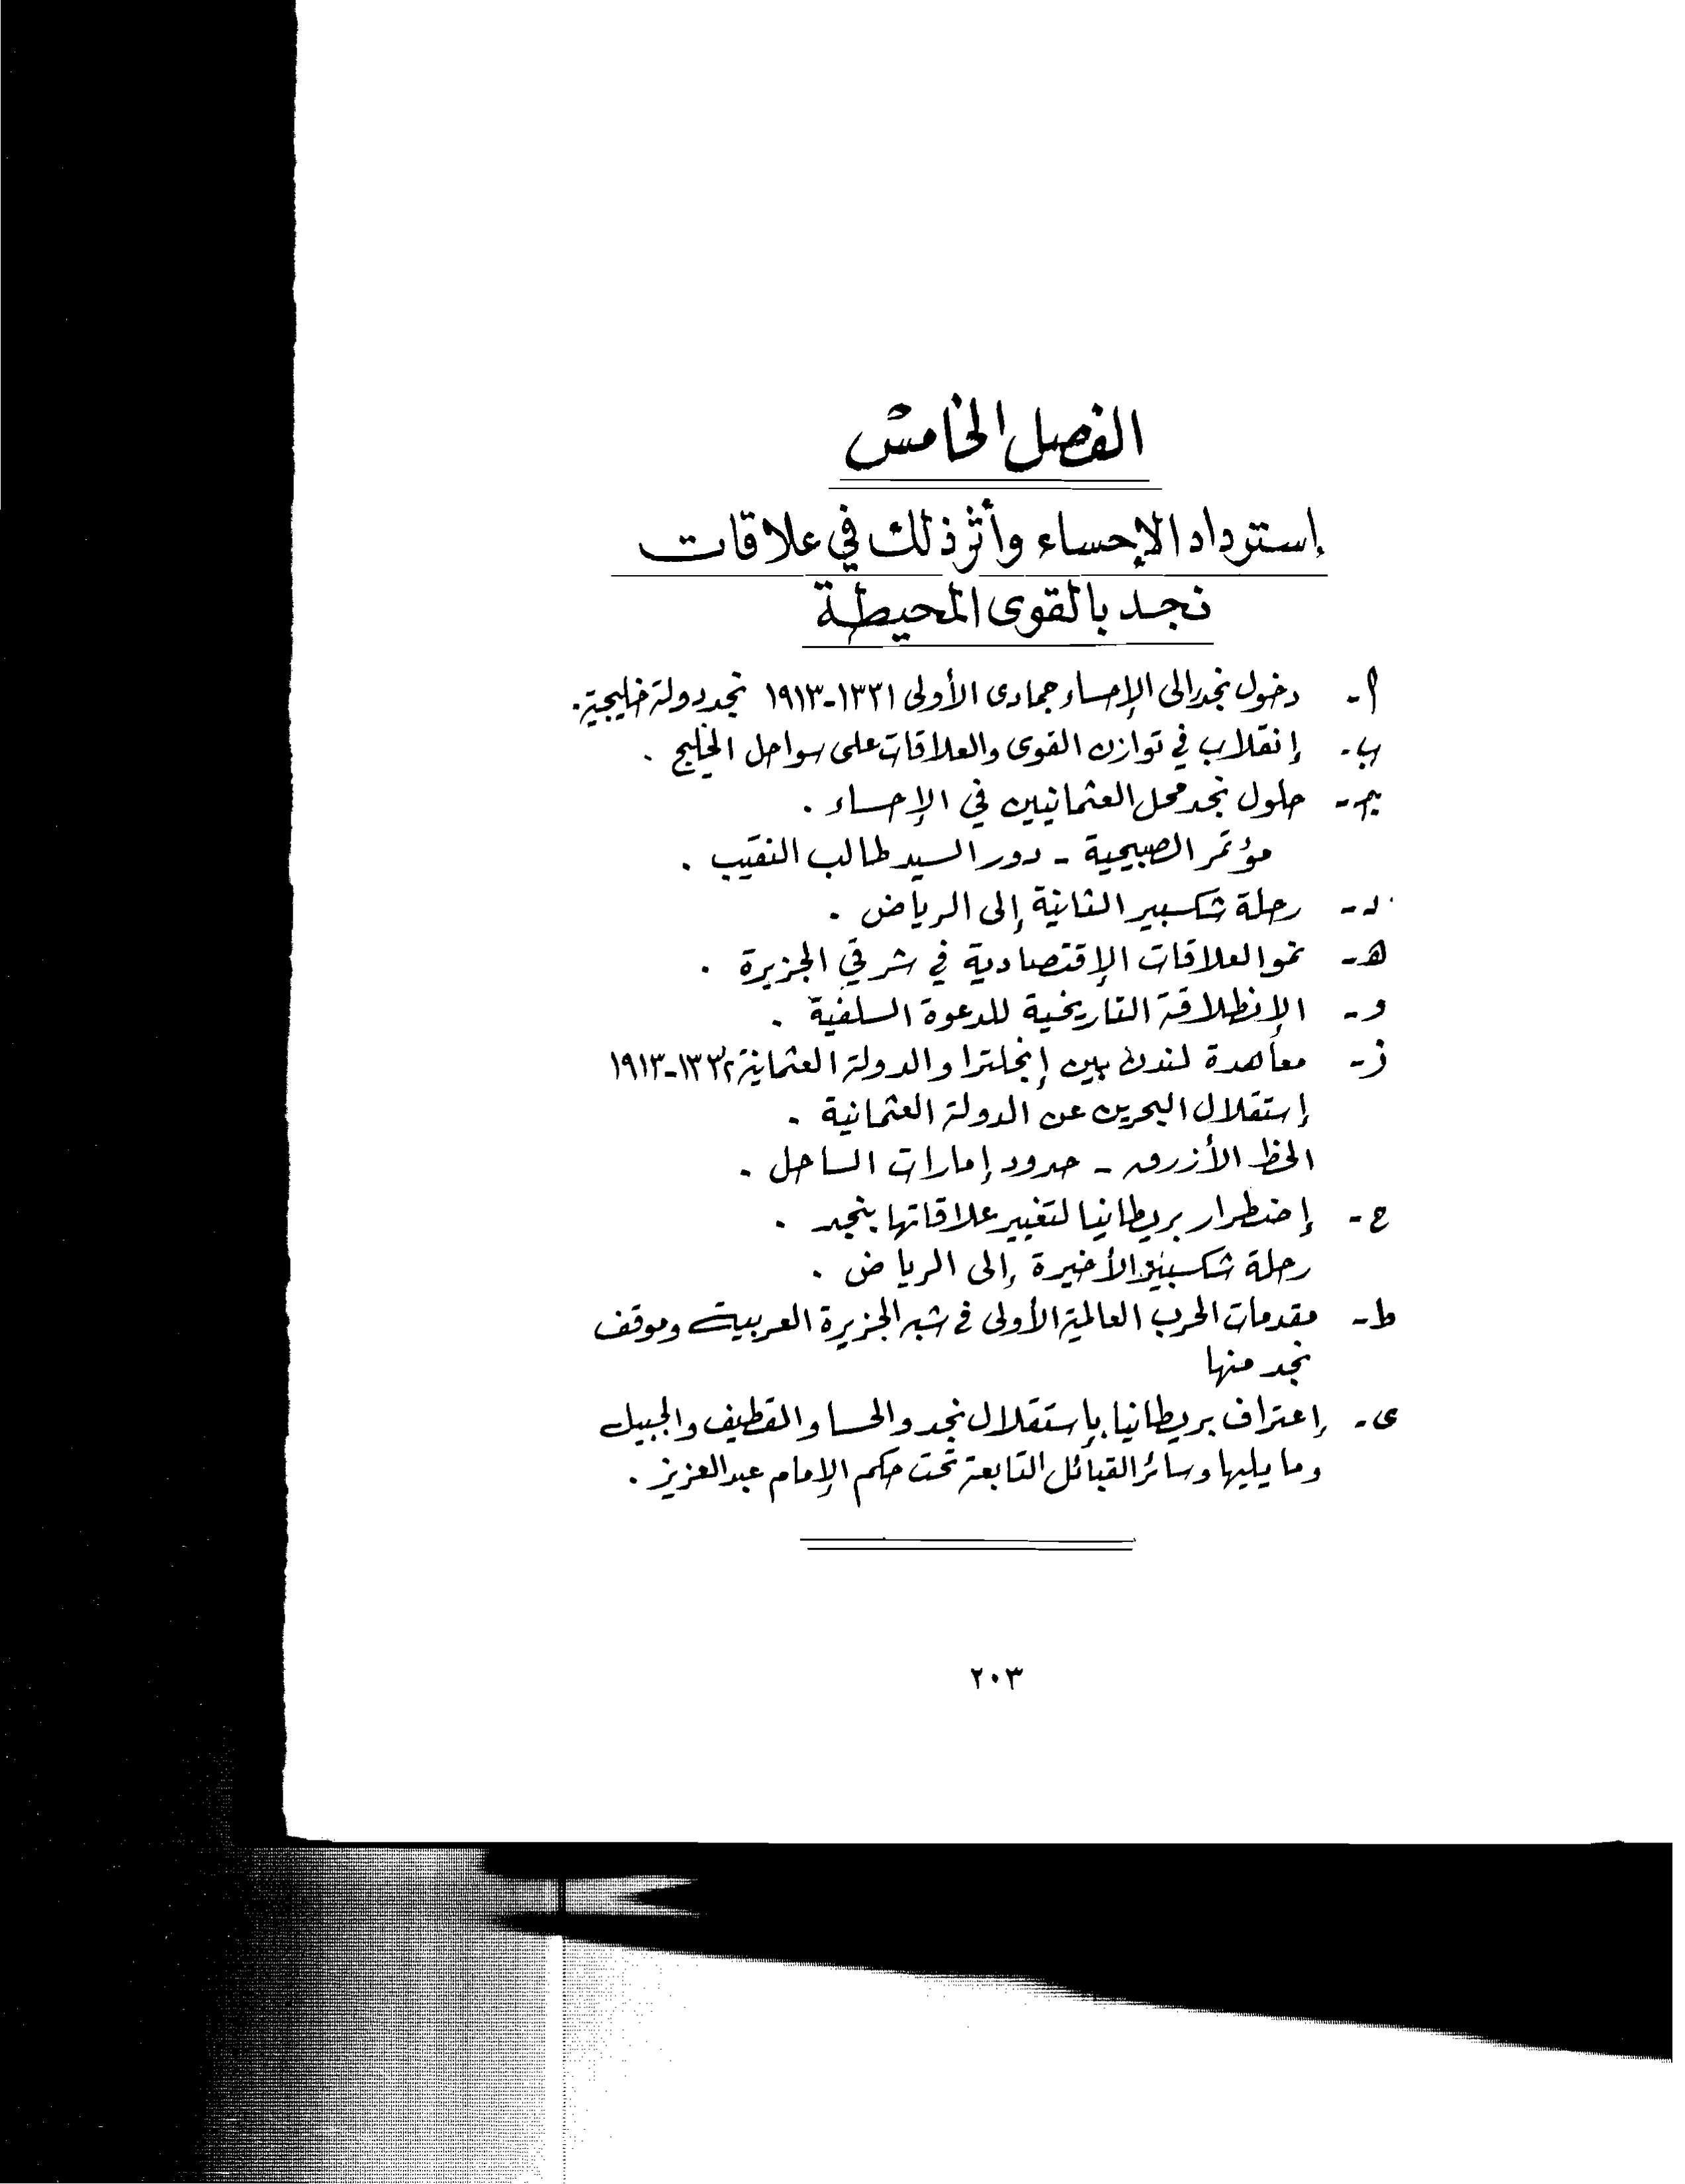 الفصل الخامس
إسترداد الإحساء وأثر ذلك في علاقات
نجد بالقوى المحيطة
أ- دخول نجد إلى الإحساء جمادى الأولى ١٣٣١-١٩١٣ نجد دولة خليجية.
ب- إنقلاب في توازن القوى والعلاقات على سواحل الخليج .
جـ- حلول نجد محل العثمانيين في الإحساء .
مؤتمر الصبيحية - دور السيد طالب النقيب .
د- رحلة شكسبير الثانية إلى الرياض .
هـ- نمو العلاقات الإقتصادية في شرقي الجزيرة .
و- الإنطلاقة التاريخية للدعوة السلفية .
ز- معاهدة لندن بين إنجلترا والدولة العثمانية ١٣٣٢-١٩١٣
إستقلال البحرين عن الدولة العثمانية .
الخط الأزرق - حدود إمارات الساحل .
ح- إضطرار بريطانيا لتغيير علاقاتها بنجد .
رحلة شكسبير الأخيرة إلى الرياض .
ط- مقدمات الحرب العالمية الأولى في شبه الجزيرة العربية وموقف
نجد منها
ى- إعتراف بريطانيا بإستقلال نجد والحسا والقطيف والجبيل
وما يليها وسائر القبائل التابعة تحت حكم الإمام عبدالعزيز .
٢٠٣